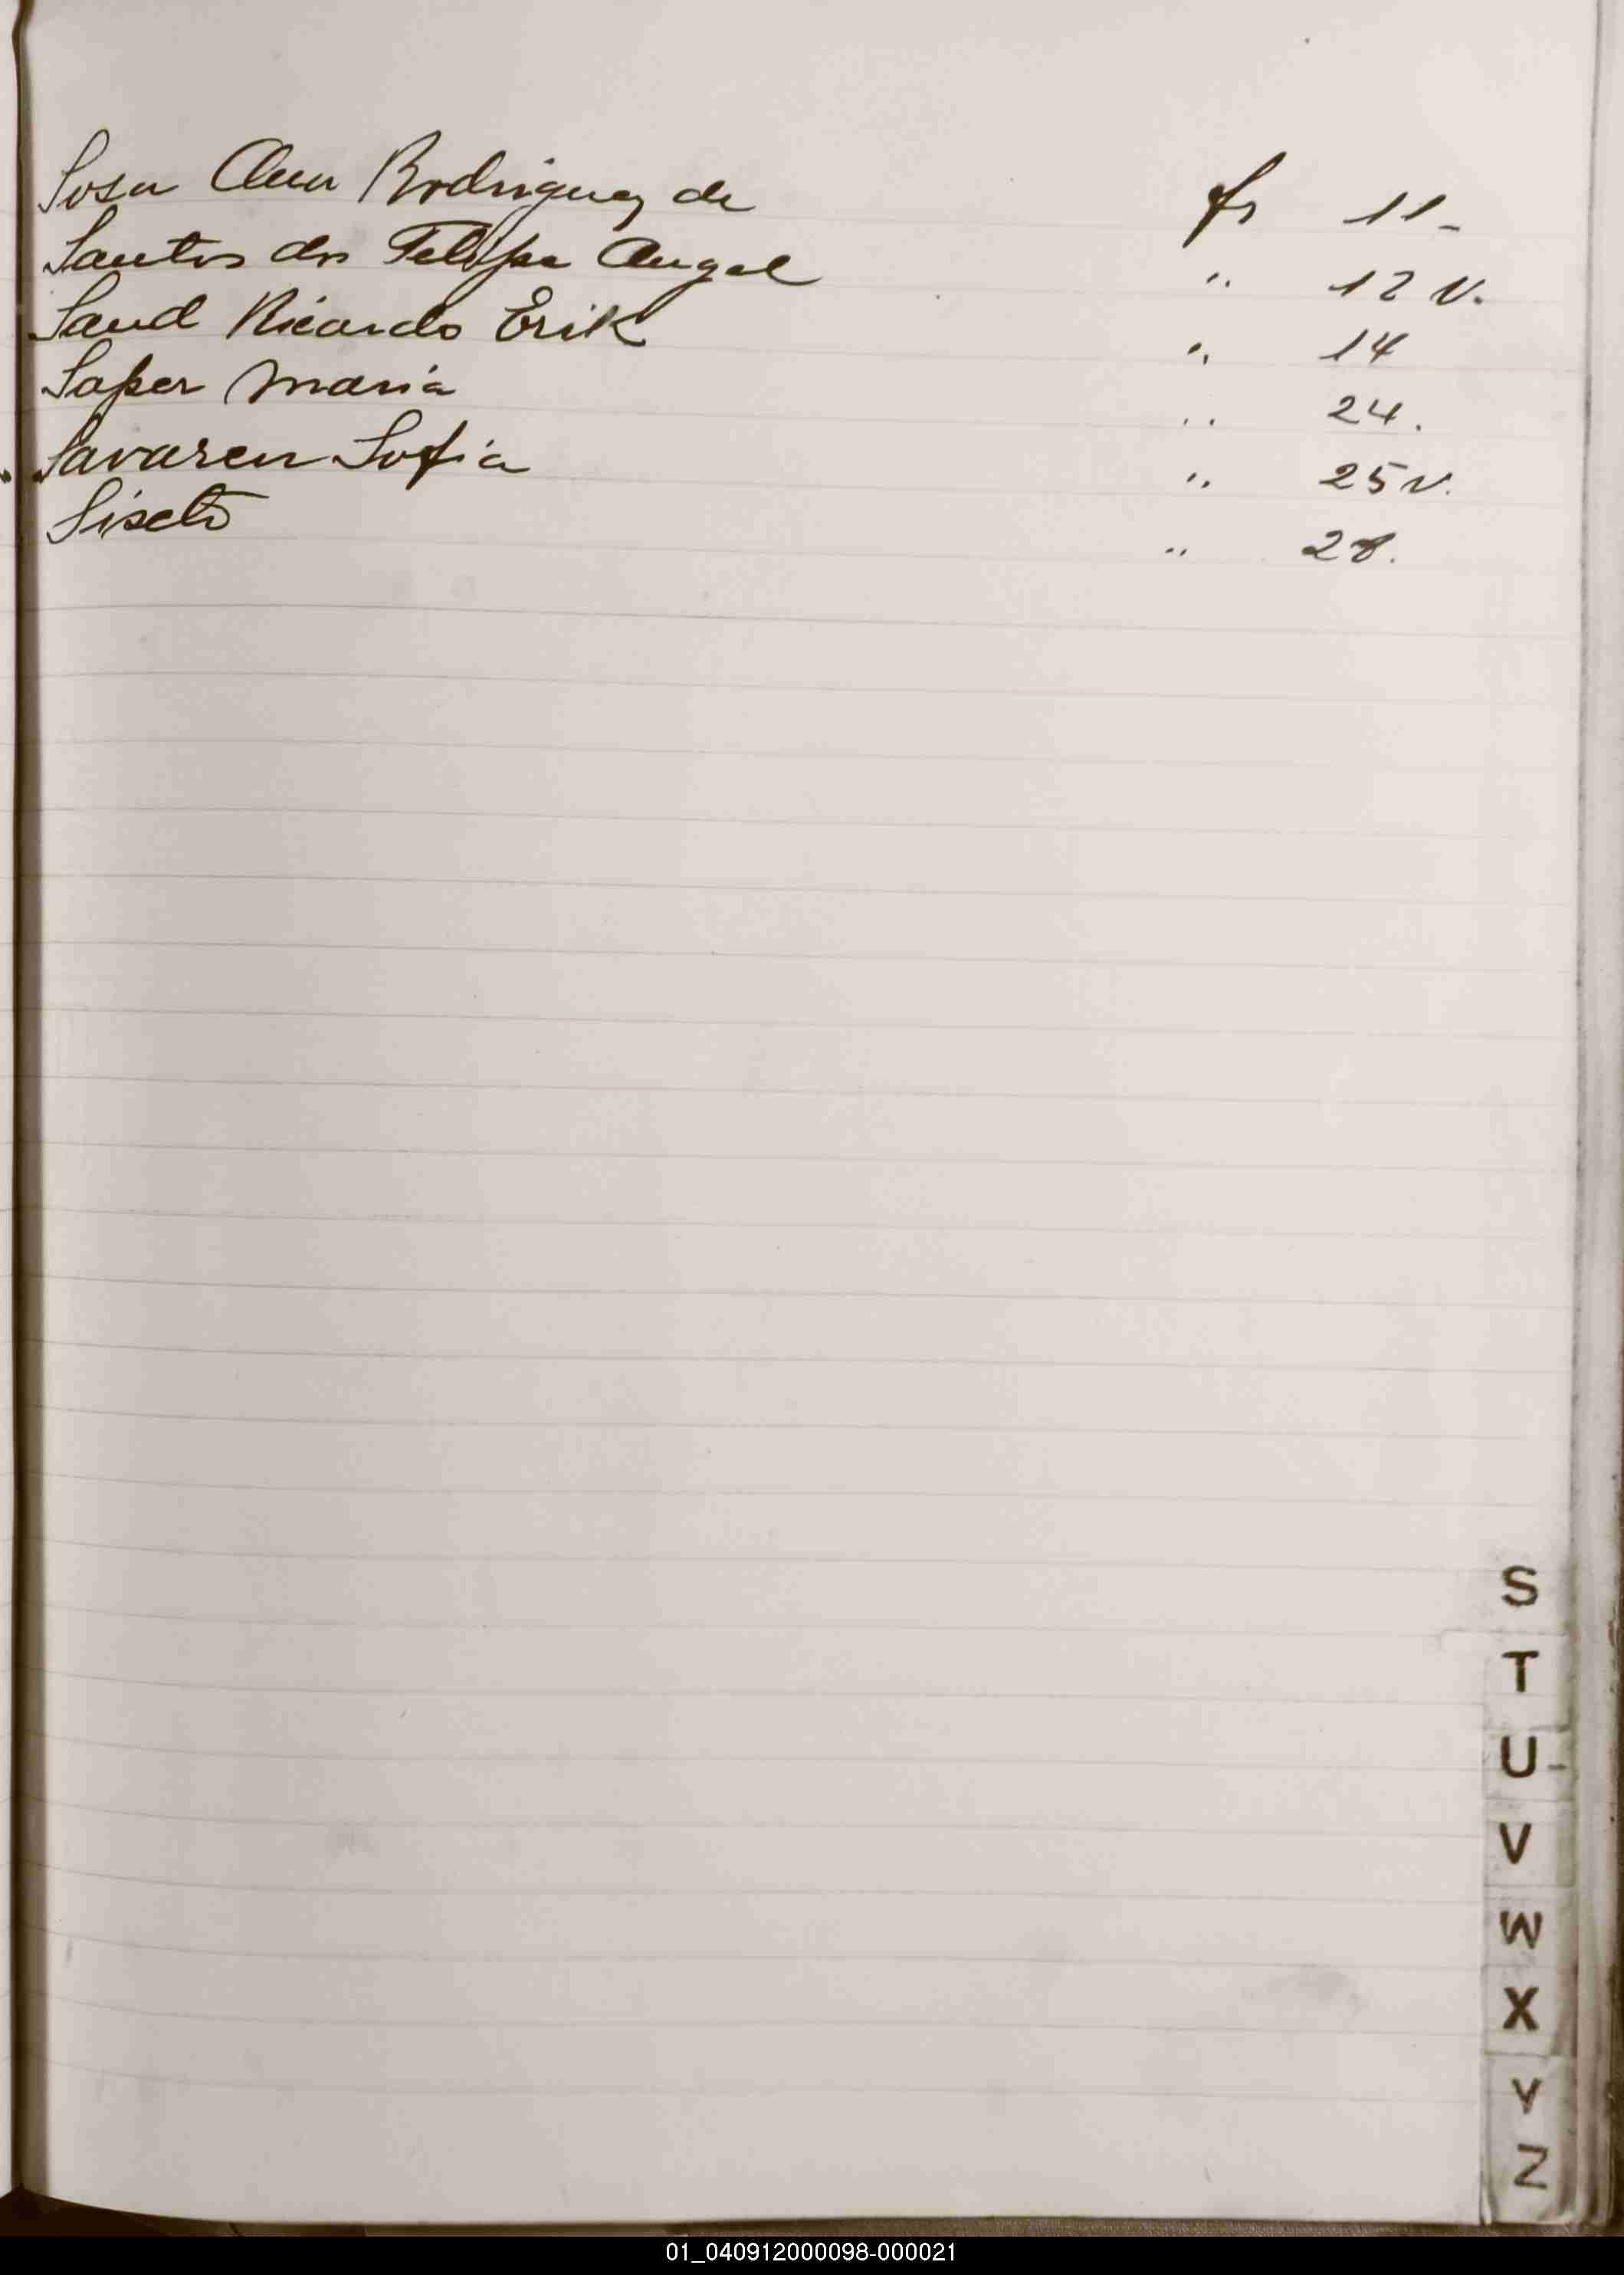 Sosa Ana Rodriguez de fs 11-
Santos dos Felipe Angel " 12 v.
Sand Ricardo Erik " 14
Saper Maria " 24.
Savaren Sofia " 25 v.
Siseto " 28.
S
T
U
V
W
X
Y
Z
01_040912000098-000021